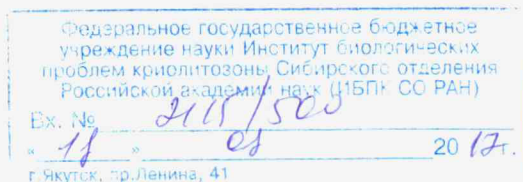 Федеральное государственное бюджетное
учреждение науки Институт биологических
проблем криолитозоны Сибирского отделения
Российской академии наук (ИБПК СО РАН)
Вх. № 2115/500
« 18 » 08 2017г.
г.Якутск, пр.Ленина, 41